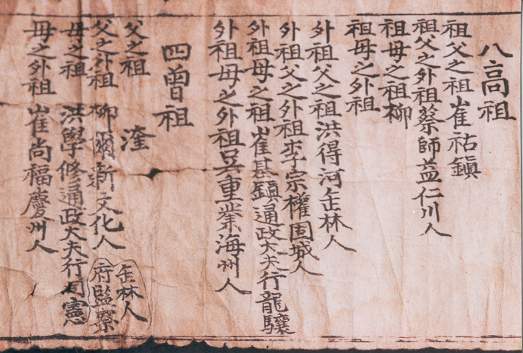 八高祖
祖父之祖崔祜鎮
祖父之外祖蔡師益仁川人
祖母之祖柳
祖母之外祖
外祖父之祖洪得河缶林人
外祖父之外祖李宗權固城人
外祖母之祖崔基鎮通政大夫行龍驤
外祖母之外祖吳重業海州人
四曾祖
父之祖 漥
父之外祖 柳爾新文化人
母之祖 洪學修通政大夫行司憲府監察缶林人
母之外祖 崔尚福慶州人